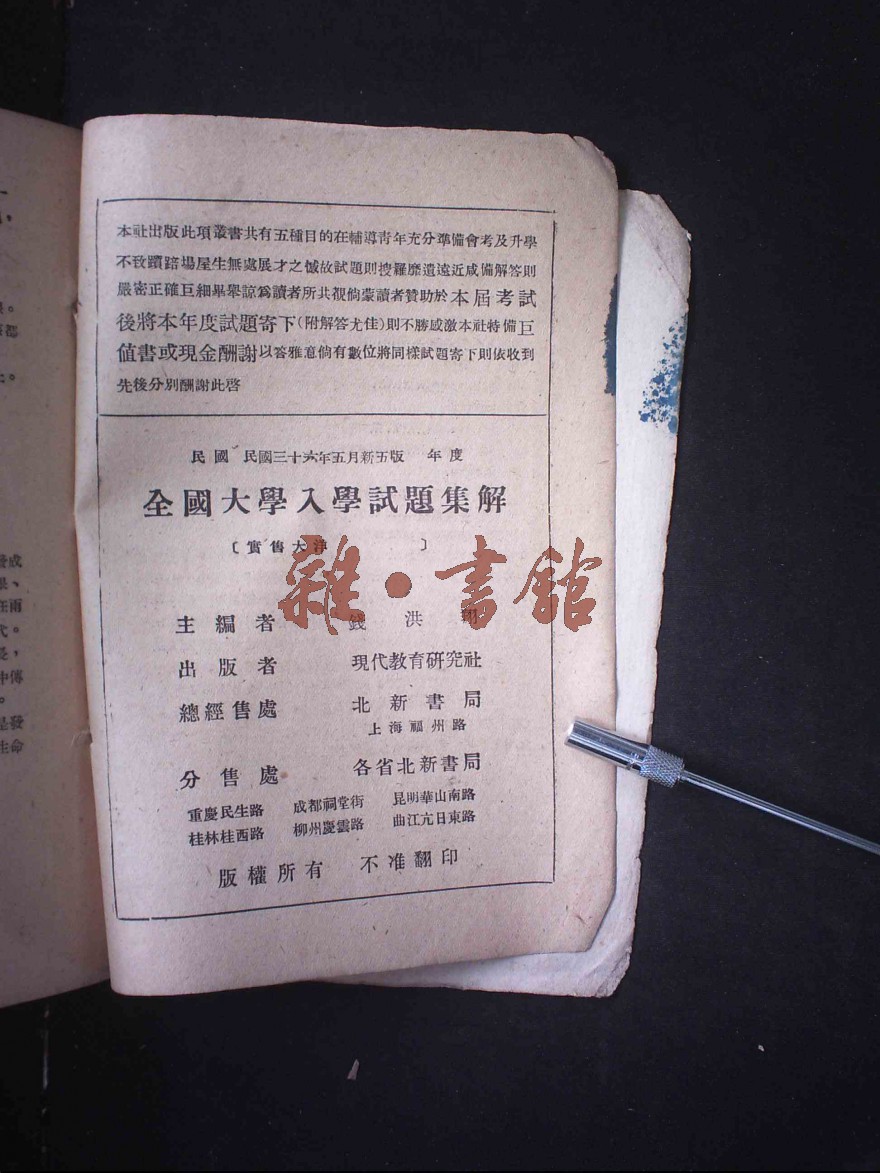 本社出版此項叢書共有五種目的在輔導青年充分準備會考及升學
不致躓踣場屋生無處展才之憾故試題則搜羅靡遺遠近咸備解答則
嚴密正確巨細畢舉諒為讀者所共覩倘蒙讀者贊助於本屆考試
後將本年度試題寄下(附解答尤佳)則不勝感激本社特備巨
值書或現金酬謝以答雅意倘有數位將同樣試題寄下則依收到
先後分別酬謝此啓
民國 民國三十六年五月新五版 年度
全國大學入學試題集解
〔實售大洋 〕
雜·書館
主編者 錢洪翔
出版者 現代教育研究社
總經售處 北新書局
上海福州路
分售處 各省北新書局
重慶民生路 成都祠堂街 昆明華山南路
桂林桂西路 柳州慶雲路 曲江亢日東路
版權所有 不准翻印